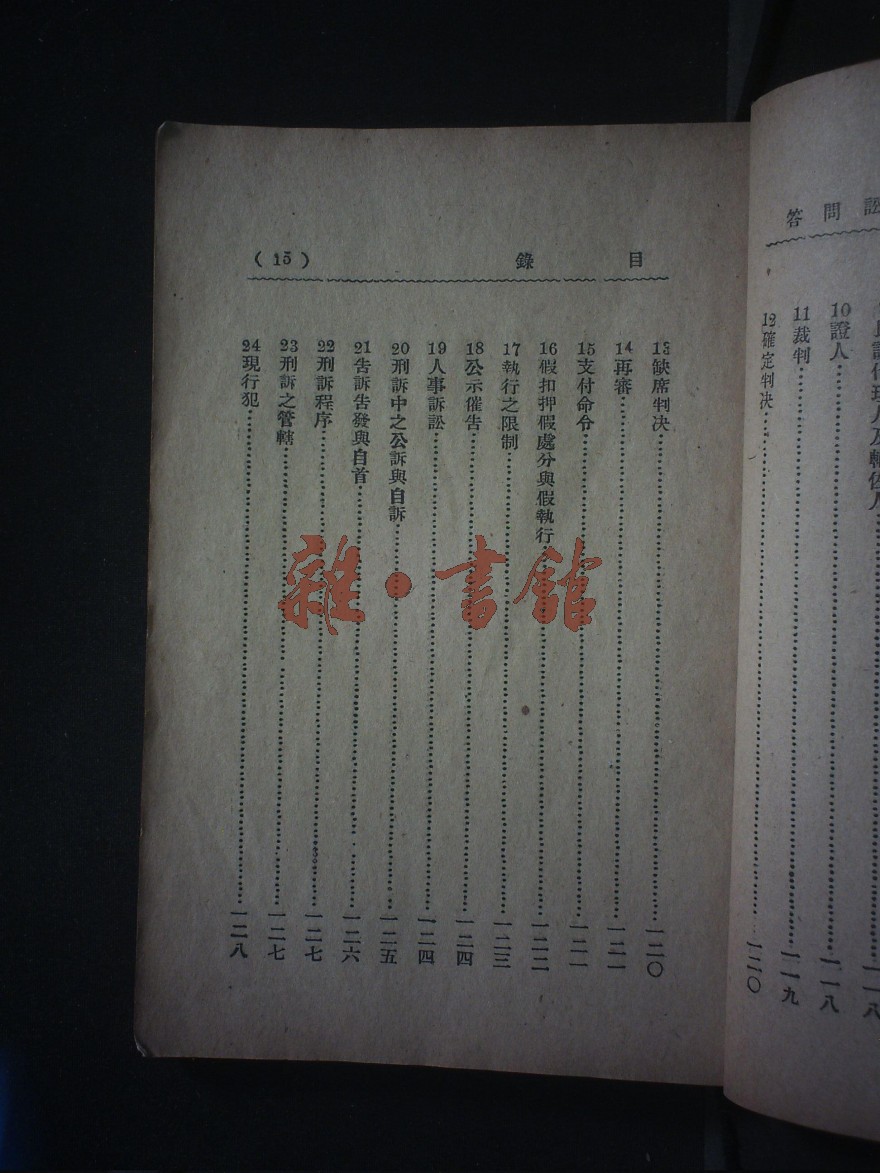 答問訟
10證人……一一八
11裁判……一一九
12確定判決……一二〇
目錄 (15)
13缺席判決……一二〇
14再審……一二一
15支付命令……一二一
16假扣押假處分與假執行……一二二
17執行之限制……一二三
18公示催告……一二四
19人事訴訟……一二四
20刑訴中之公訴與自訴……一二五
21告訴告發與自首……一二六
22刑訴程序……一二七
23刑訴之管轄……一二七
24現行犯……一二八
雜·書館